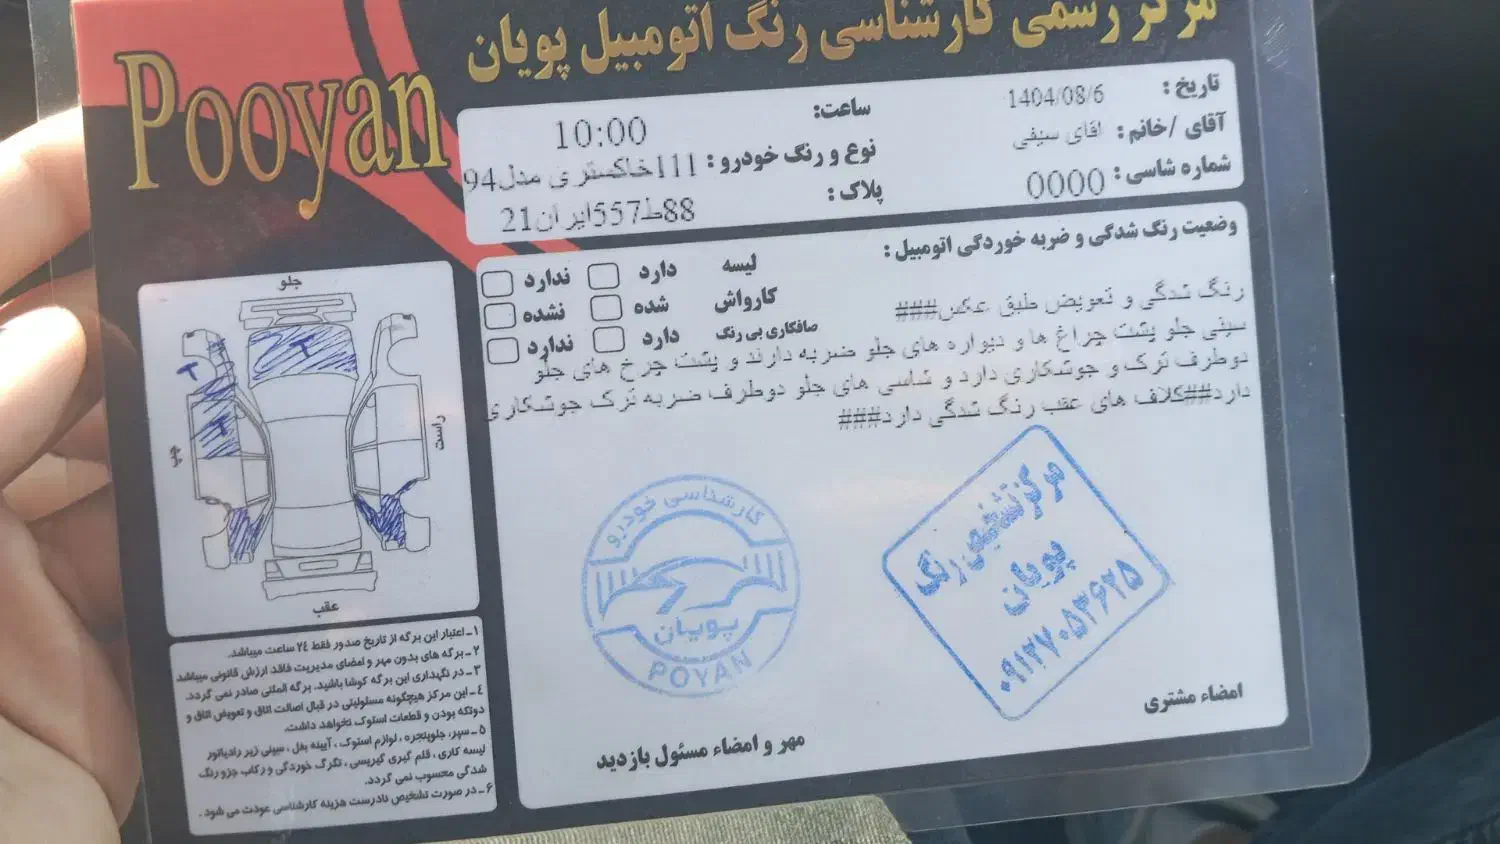 مرکز رسمی کارشناسی رنگ اتومبیل پویان
Pooyan
تاریخ : 1404/08/6
ساعت: 10:00
آقای /خانم : اقای سیفی
نوع و رنگ خودرو : 111خاکستری مدل94
شماره شاسی : 0000
پلاک : 88ط557ایران21
وضعیت رنگ شدگی و ضربه خوردگی اتومبیل :
لیسه دارد ندارد
کارواش شده نشده
صافکاری بی رنگ دارد ندارد
رنگ شدگی و تعویض طبق عکس###
سینی جلو پشت چراغ ها و دیواره های جلو ضربه دارند و پشت چرخ های جلو
دوطرف ترک و جوشکاری دارد و شاسی های جلو دوطرف ضربه ترک جوشکاری
دارد##کلاف های عقب رنگ شدگی دارد###
جلو
T
T
T
چپ
راست
عقب
کارشناسی خودرو
پویان
POYAN
مرکز تشخیص رنگ
پویان
۰۹۱۲۷۰۵۳۶۲۵
امضاء مشتری
مهر و امضاء مسئول بازدید
۱ـ اعتبار این برگه از تاریخ صدور فقط ٢٤ ساعت میباشد.
۲ـ برگه های بدون مهر و امضای مدیریت فاقد ارزش قانونی میباشد
۳ـ در نگهداری این برگه کوشا باشید. برگه المثنی صادر نمی گردد.
٤ـ این مرکز هیچگونه مسئولیتی در قبال اصالت اتاق و تعویض اتاق و
دوتکه بودن و قطعات استوک نخواهد داشت.
۵ـ سپر، جلوپنجره ، لوازم استوک ، آیینه بغل ، سینی زیر رادیاتور
لیسه کاری ، قلم گیری گیریسی ، تگرگ خوردگی و رکاب جزو رنگ
شدگی محسوب نمی گردد.
۶ـ در صورت تشخیص نادرست هزینه کارشناسی عودت می شود .